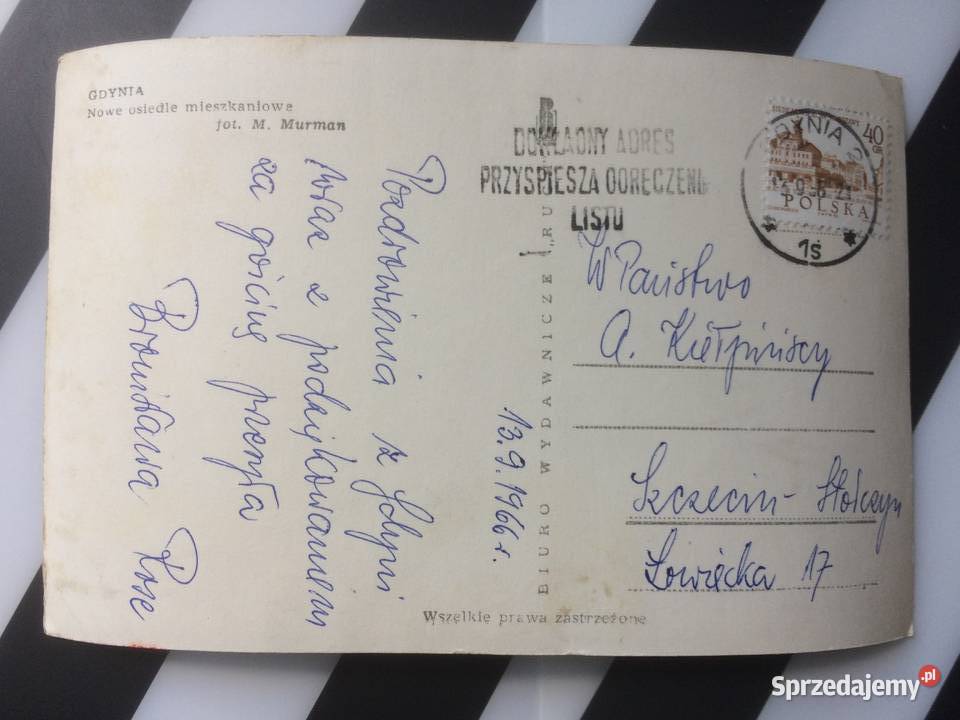 GDYNIA
Nowe osiedle mieszkaniowe
fot. M. Murman
Pozdrowienia z Gdyni
wraz z podziękowaniem
za gościnę przesyła
Bronisława Rose
13.9.1966 r.
BIURO WYDAWNICZE „RU
DOKŁADNY ADRES
PRZYSPIESZA DORĘCZENI
LISTU
GDYNIA 2
1s
40
GR
POLSKA
W Państwo
A. Kiełpińscy
Szczecin - Stołczyn
Łowiecka 17
Wszelkie prawa zastrzeżone
Sprzedajemy.pl